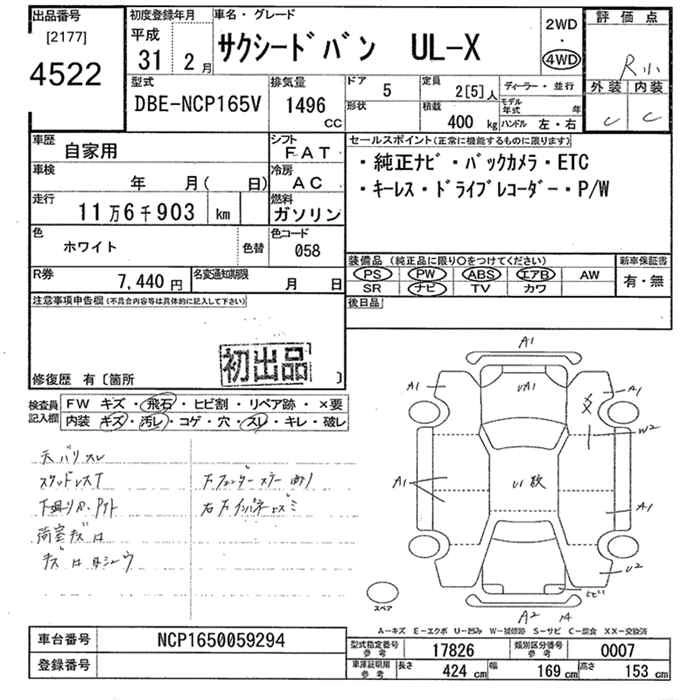 出品番号 初度登録年月 車名・グレード 評価点
[2177] 平成 2WD
4522 31年 2月 サクシードバン UL-X ・ 4WD R小
型式 排気量 ドア 定員 ディーラー・並行 外装 内装
DBE-NCP165V 1496 cc 5 2[5]人 モデル年式 年 C C
形状 積載 400 kg ハンドル 左・右
車歴 自家用 シフト FAT セールスポイント(正常に機能するものに限ります)
車検 年 月( 日) 冷房 AC ・純正ナビ・バックカメラ・ETC
走行 11万6千903 km 燃料 ガソリン ・キーレス・ドライブレコーダー・P/W
色 ホワイト 色替 色コード 058
装備品(純正品に限り○をつけてください) 新車保証書
R券 7,440円 名変通知期限 月 日 PS PW ABS エアB AW 有・無
SR ナビ TV カワ
注意事項申告欄(不具合内容等は具体的に記入して下さい) 後日品
初出品
修復歴 有〔箇所 〕
検査員記入欄 FW キズ・飛石・ヒビ割・リペア跡・×要
内装 キズ・汚レ・コゲ・穴・スレ・キレ・破レ
天バリスレ
スタッドレスT
下回りサ、アト
荷室キズ凹
A1
A1 UA1 A1
W2
A1 U1 A1
U2
スペア
A2
A-キズ E-エクボ U-凹み W-補修跡 S-サビ C-腐食 XX-交換済
車台番号 NCP1650059294 型式指定番号 参考 17826 類別区分番号 参考 0007
登録番号 車庫証明用 参考 長さ 424 cm 幅 169 cm 高さ 153 cm